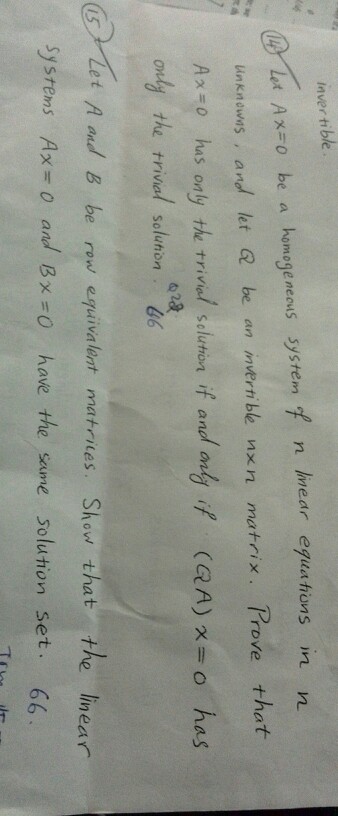 invertible.
(14) Let Ax=0 be a homogeneous system of n linear equations in n
unknowns, and let Q be an invertible nxn matrix. Prove that
Ax=0 has only the trivial solution if and only if (QA)x=0 has
only the trivial solution. 66
(15) Let A and B be row equivalent matrices. Show that the linear
systems Ax=0 and Bx=0 have the same solution set. 66.